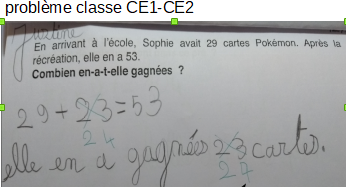 problème classe CE1-CE2
Justine
En arrivant à l'école, Sophie avait 29 cartes Pokémon. Après la
récréation, elle en a 53.
Combien en-a-t-elle gagnées ?
29+23=53
24
elle en a gagnées 23 cartes.
27